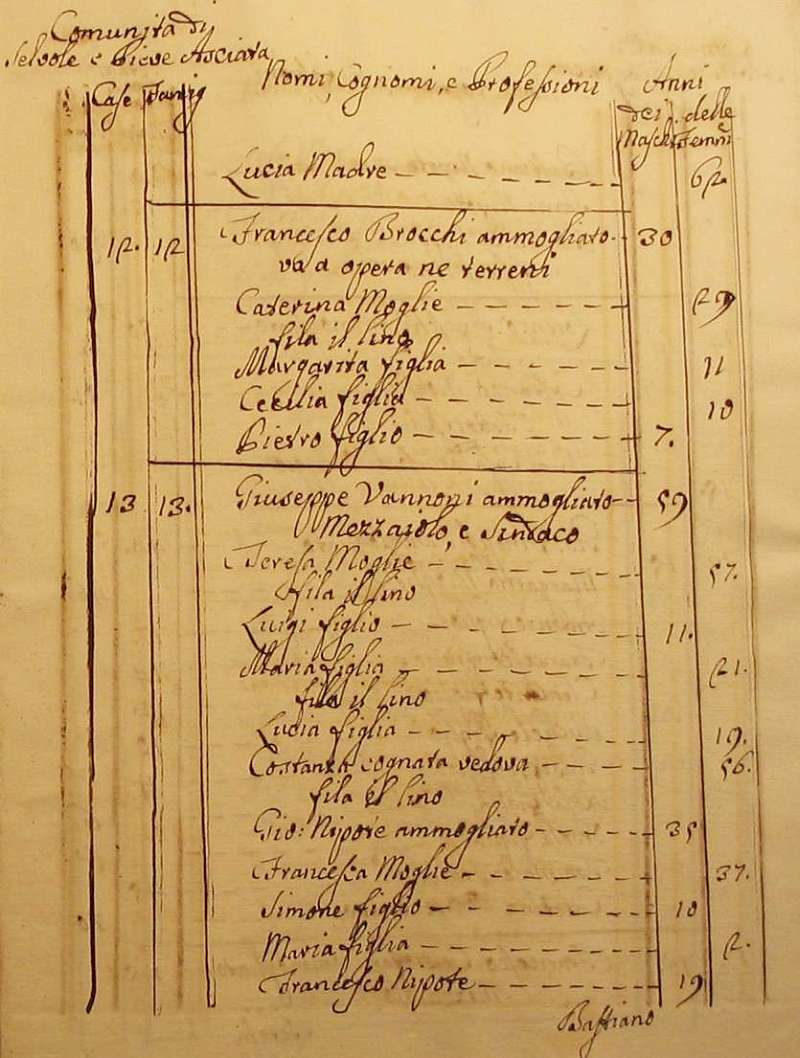 Comunità di
Selvole e Pieve Asciata
Nomi, Cognomi, e Professioni
Anni
Case Famig
dei delle
Masch Femm
Lucia Madre 62.
12. 12 Francesco Brocchi ammogliato 30
va a opera ne terreni
Caterina Moglie 29
fila il lino
Margarita figlia 11
Cecilia figlia 10
Pietro figlio 7.
13 13. Giuseppe Vannoni ammogliato 59
Mezzaiolo, e Sindaco
Teresa Moglie 57.
fila il lino
Luigi figlio 11.
Maria figlia 21.
fila il lino
Lucia figlia 19.
Costanza cognata vedova 56.
fila il lino
Gio: Nipote ammogliato 35
Francesca Moglie 37.
Simone figlio 10
Maria figlia 2.
Francesco Nipote 19
Bastiano